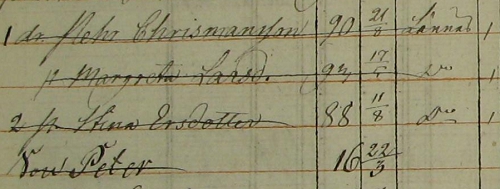 1 dr Pehr Chrismansson 90 21/8 Lännäs 1
p Margreta Larsd. 94 17/ Do
2 p Stina Ersdotter 88 11/8 Do 1
Son Peter 16 22/3